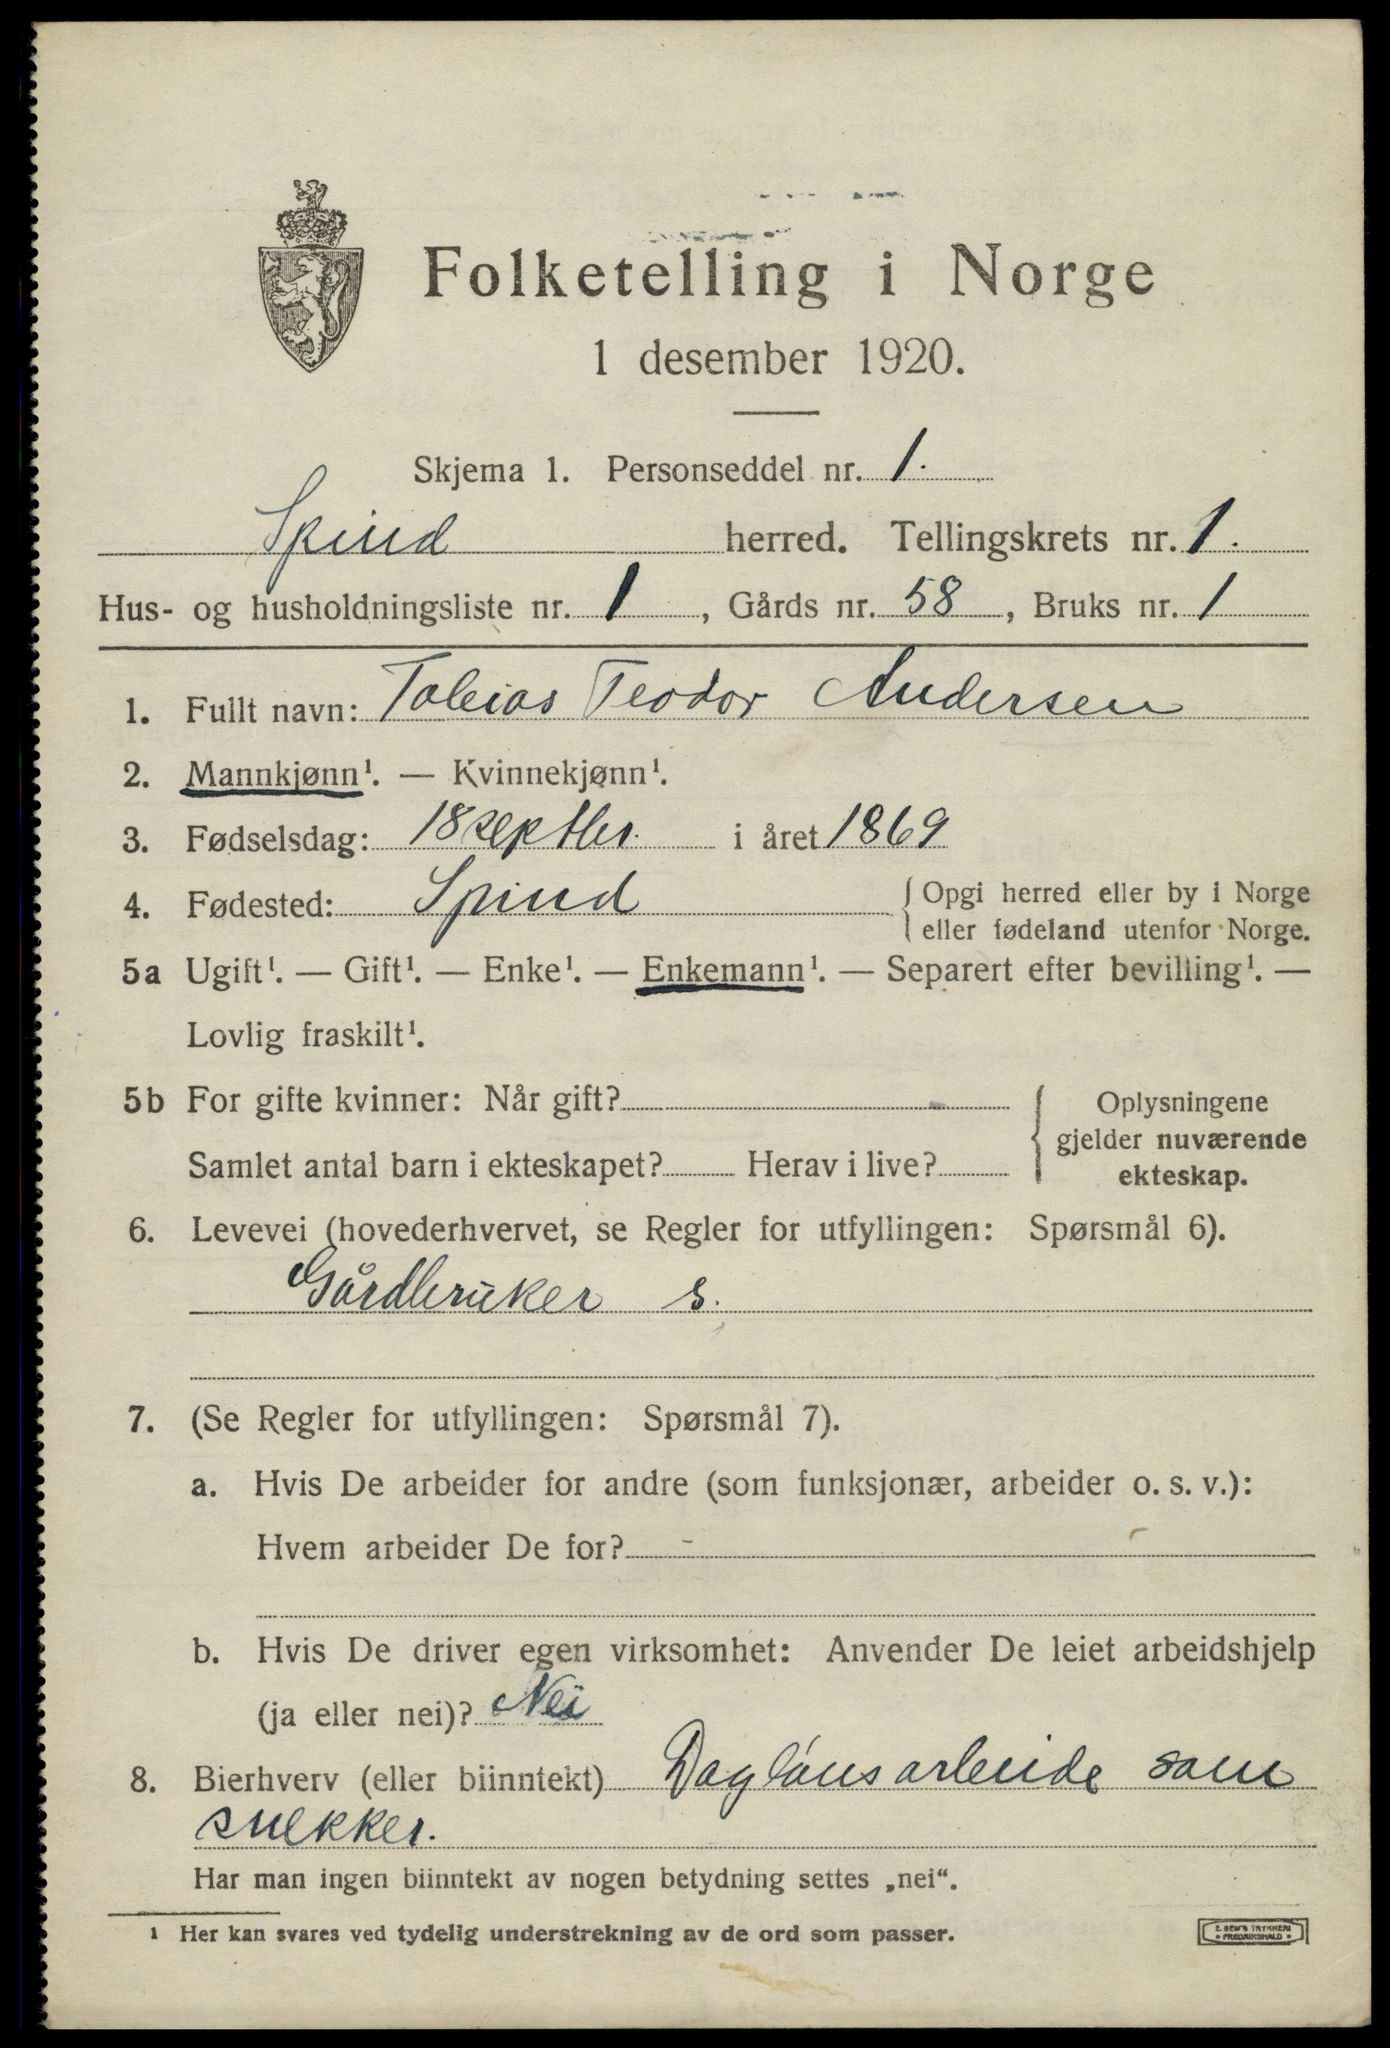 Folketelling i Norge
1 desember 1920.
Skjema 1. Personseddel nr. 1.
Spind herred. Tellingskrets nr. 1.
Hus- og husholdningsliste nr. 1, Gårds nr. 58, Bruks nr. 1
1. Fullt navn: Tobias Teodor Andersen
2. Mannkjønn¹. — Kvinnekjønn¹.
3. Fødselsdag: 18 septbr. i året 1869
4. Fødested: Spind { Opgi herred eller by i Norge
eller fødeland utenfor Norge.
5a Ugift¹. — Gift¹. — Enke¹. — Enkemann¹. — Separert efter bevilling¹. —
Lovlig fraskilt¹.
5b For gifte kvinner: Når gift? { Oplysningene
gjelder nuværende
Samlet antal barn i ekteskapet? Herav i live? ekteskap.
6. Levevei (hovederhvervet, se Regler for utfyllingen: Spørsmål 6).
Gårdbruker s.
7. (Se Regler for utfyllingen: Spørsmål 7).
a. Hvis De arbeider for andre (som funksjonær, arbeider o. s. v.):
Hvem arbeider De for? -
b. Hvis De driver egen virksomhet: Anvender De leiet arbeidshjelp
(ja eller nei)? Nei
8. Bierhverv (eller biinntekt) Dagløns arbeide som
snekker.
Har man ingen biinntekt av nogen betydning settes „nei“.
¹ Her kan svares ved tydelig understrekning av de ord som passer.
E. SEM'S TRYKKERI
• FREDRIKSHALD •